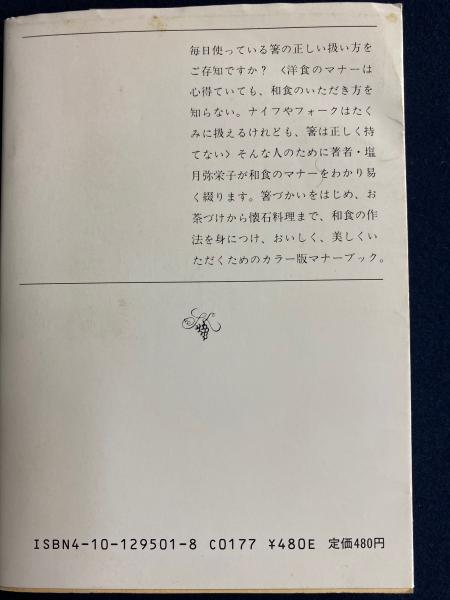 毎日使っている箸の正しい扱い方を
ご存知ですか？〈洋食のマナーは
心得ていても、和食のいただき方を
知らない。ナイフやフォークはたく
みに扱えるけれども、箸は正しく持
てない〉そんな人のために著者・塩
月弥栄子が和食のマナーをわかり易
く綴ります。箸づかいをはじめ、お
茶づけから懐石料理まで、和食の作
法を身につけ、おいしく、美しくい
ただくためのカラー版マナーブック。
ISBN4-10-129501-8 C0177 ¥480E 定価480円